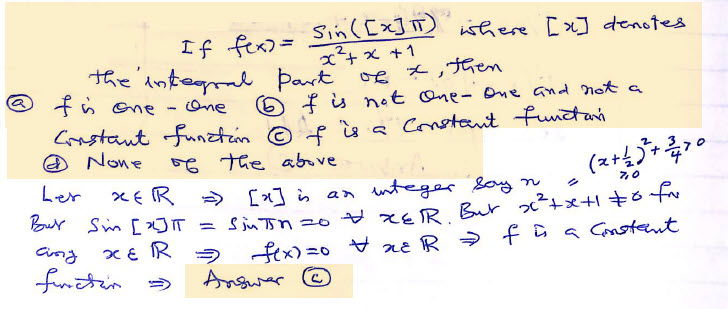 If f(x) = sin([x]π) / x²+x+1 where [x] denotes
the integral part of x, then
ⓐ f is one-one ⓑ f is not one-one and not a
constant function ⓒ f is a constant function
ⓓ None of the above
(x+1/2)²+3/4>0
≥0
Let x∈ℝ ⇒ [x] is an integer say n
But Sin[x]π = Sinπn=0 ∀ x∈ℝ. But x²+x+1≠0 for
any x∈ℝ ⇒ f(x)=0 ∀ x∈ℝ ⇒ f is a constant
function ⇒ Answer ⓒ